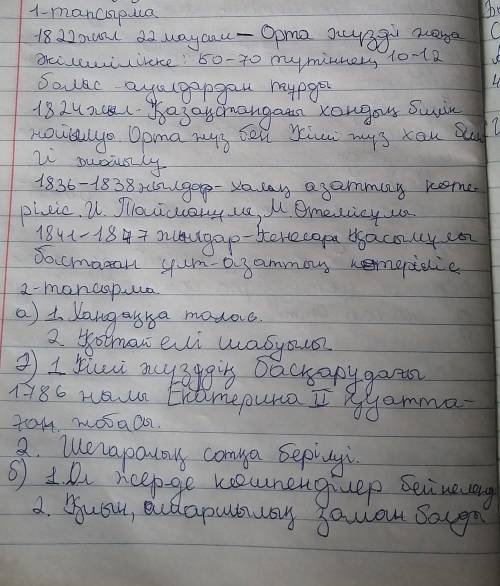 1-тапсырма
1822 жыл 22 маусым - Орта жүзді жаңа
әкімшілікке: 50-70 түтіннең 10-12
болыс-ауылдардан тұрды
1824 жыл - Қазақстандағы хандық билік
жойылуы. Орта жүз бен Кіші жүз хан билі
гі жойылу
1836-1838 жылдар - халық азаттық көте-
ріліс. И. Тайманұлы, М. Өтемісұлы
1841-1847 жылдар - Кенесары Қасымұлы
бастаған ұлт-азаттық көтеріліс
2-тапсырма
а) 1. Хандаққа талас.
2. Қытай елі шабуылы
ә) 1 Кіші жүздің басқарудағы
1786 жылы Екатерина II қуатта-
ған жобасы.
2. Шегаралық сотқа берілуі.
б) 1. Ол жерде көшпенділер бейнеленд
2. Қиын, ашаршылық заман болды